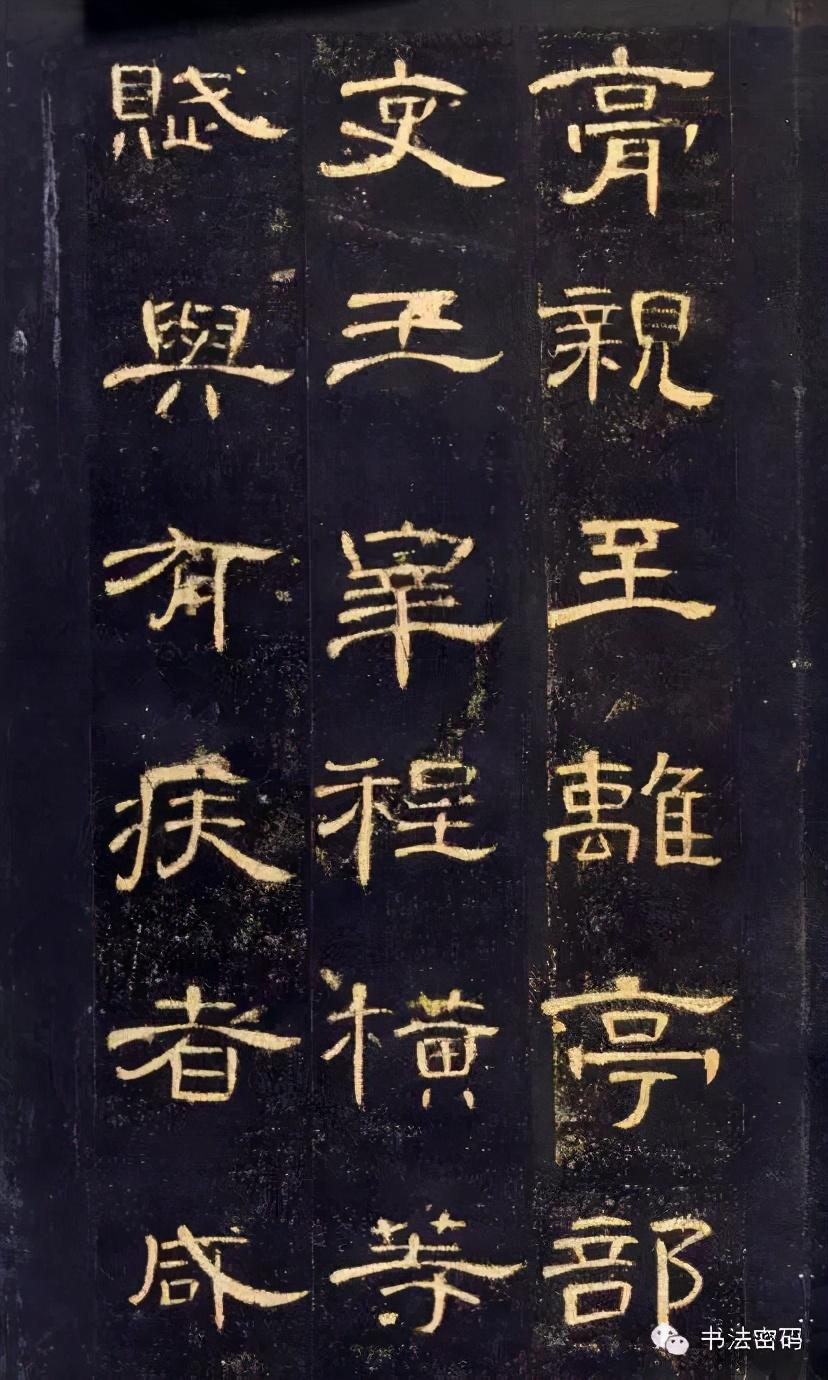 膏親至離亭部
吏王宰程橫等
賦與有疾者咸
书法密码